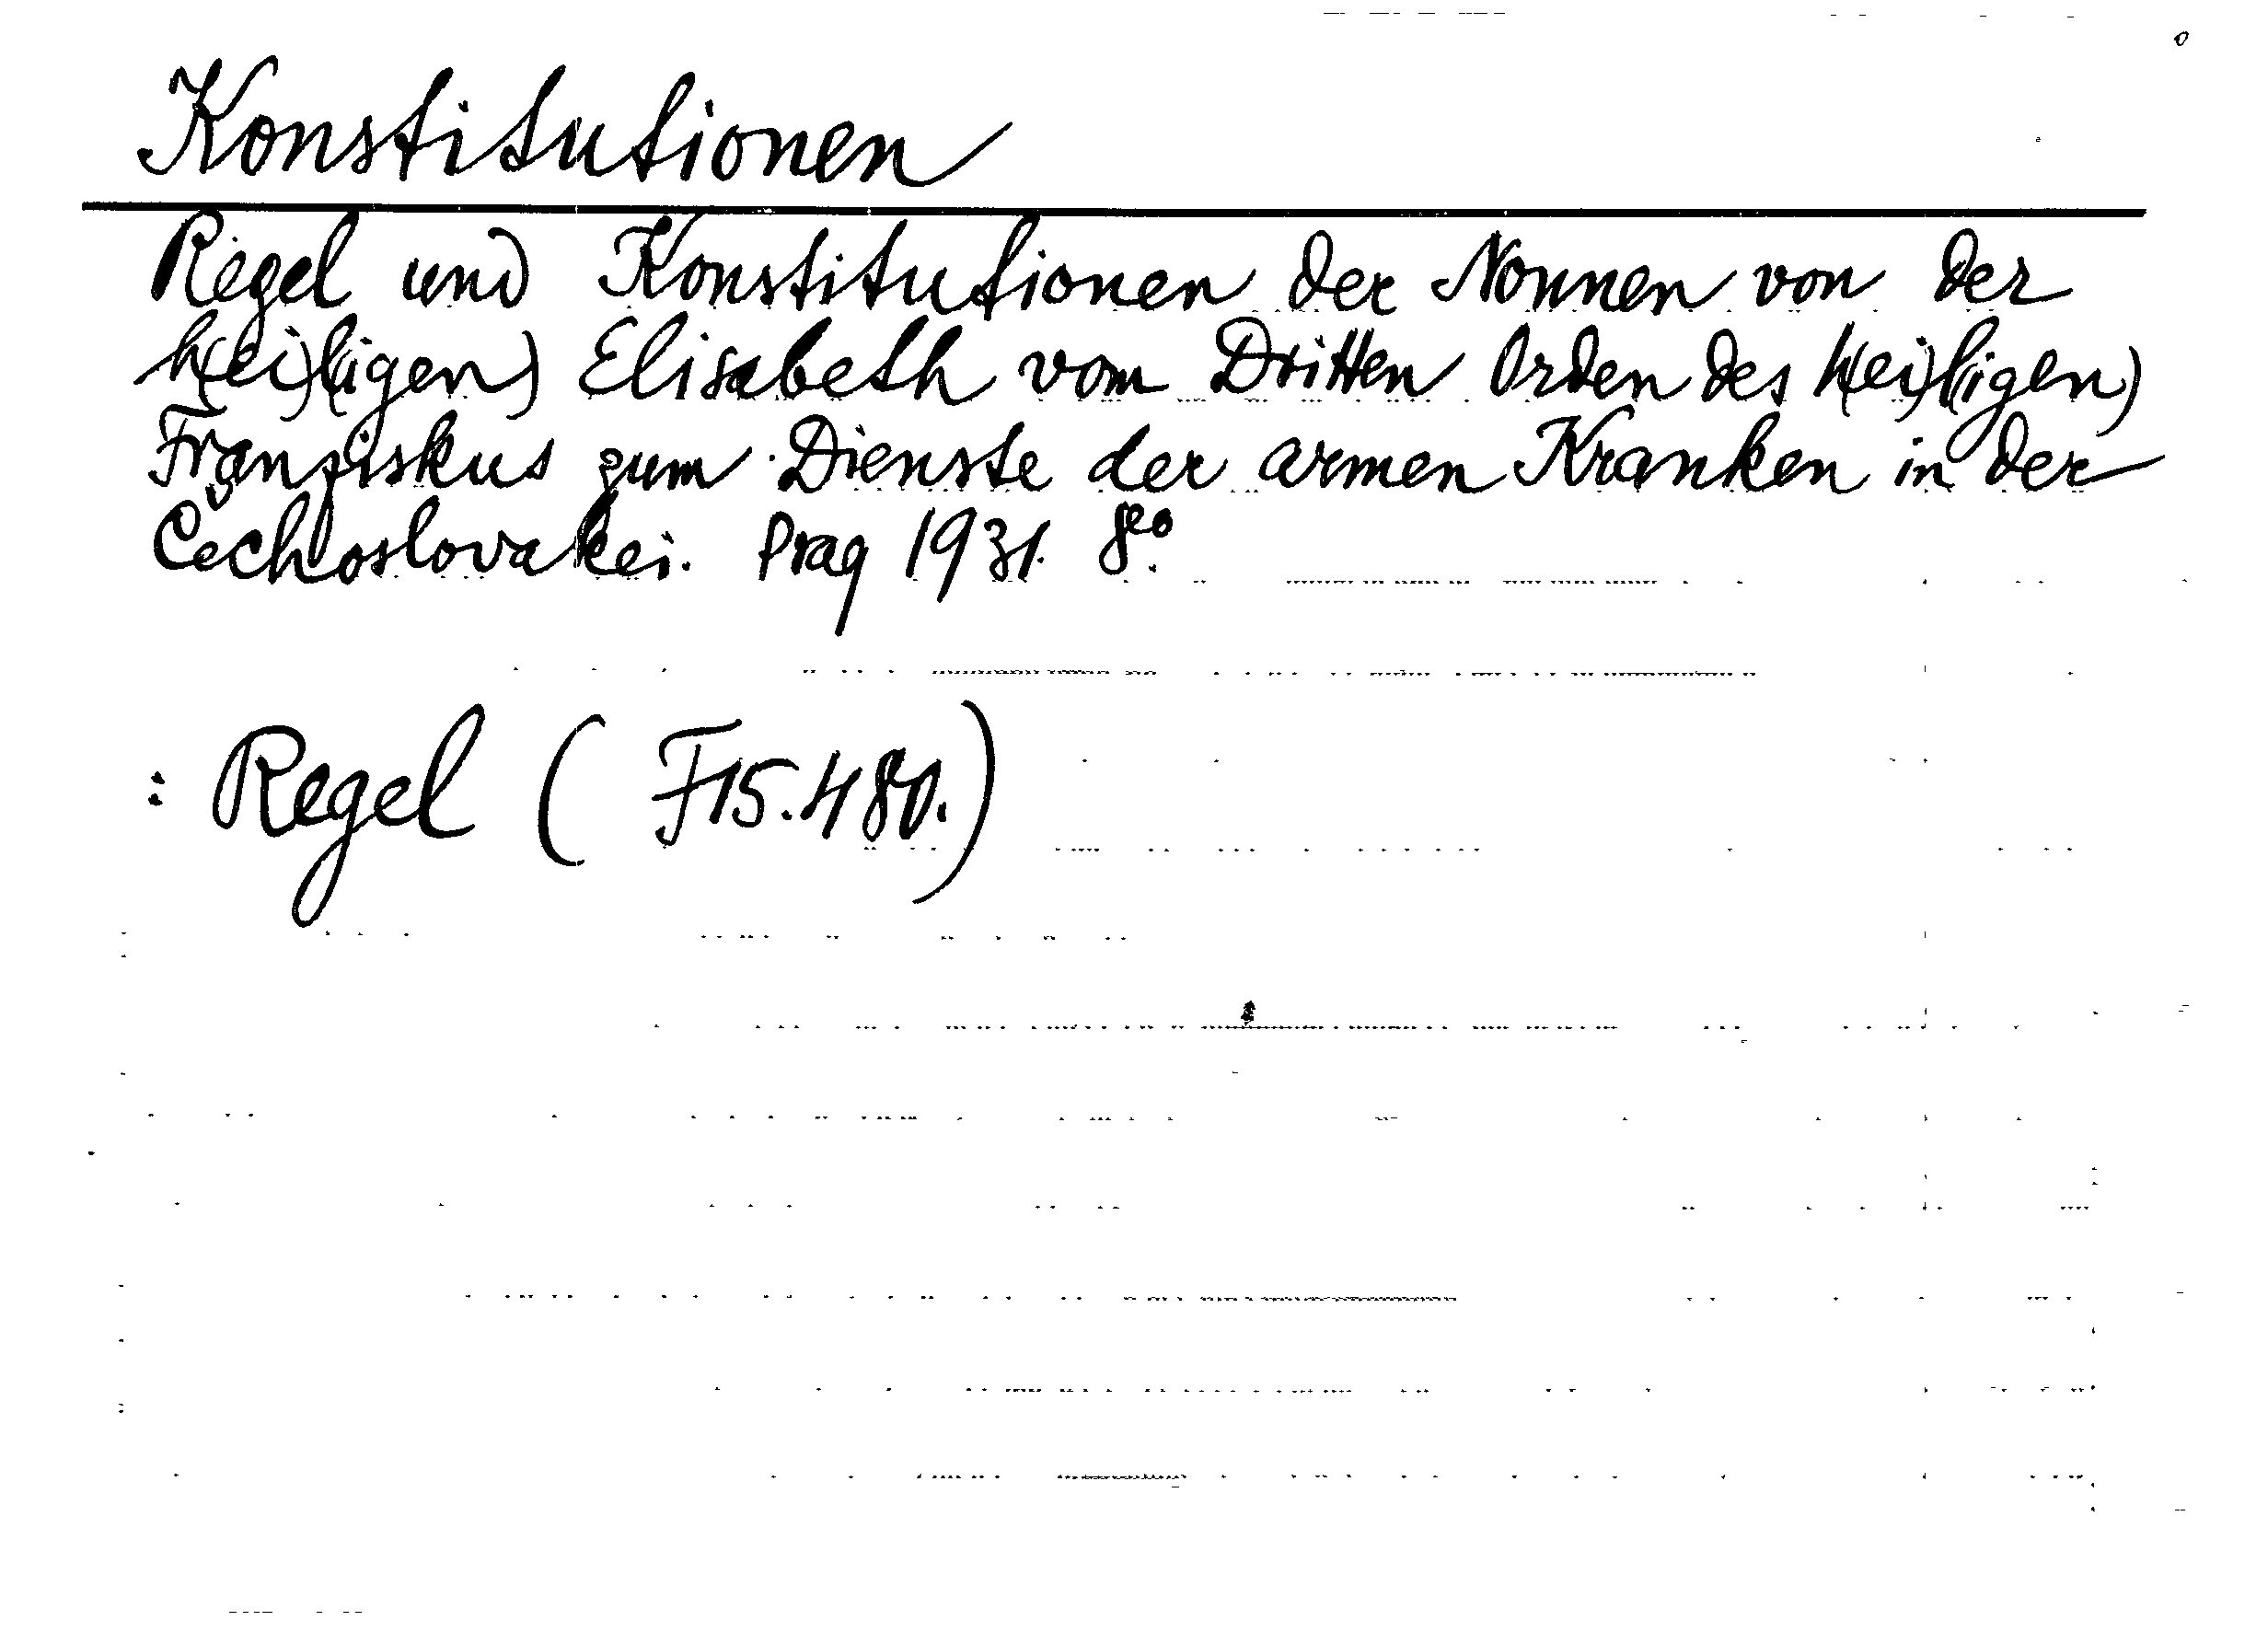 Konstitutionen
Regel und Konstitutionen der Nonnen von der
h(ei)l(igen) Elisabeth vom Dritten Orden des h(ei)l(igen)
Franziskus zum Dienste der armen Kranken in der
Čechoslovakei. Prag 1931. 8°.
: Regel (F15.480.)